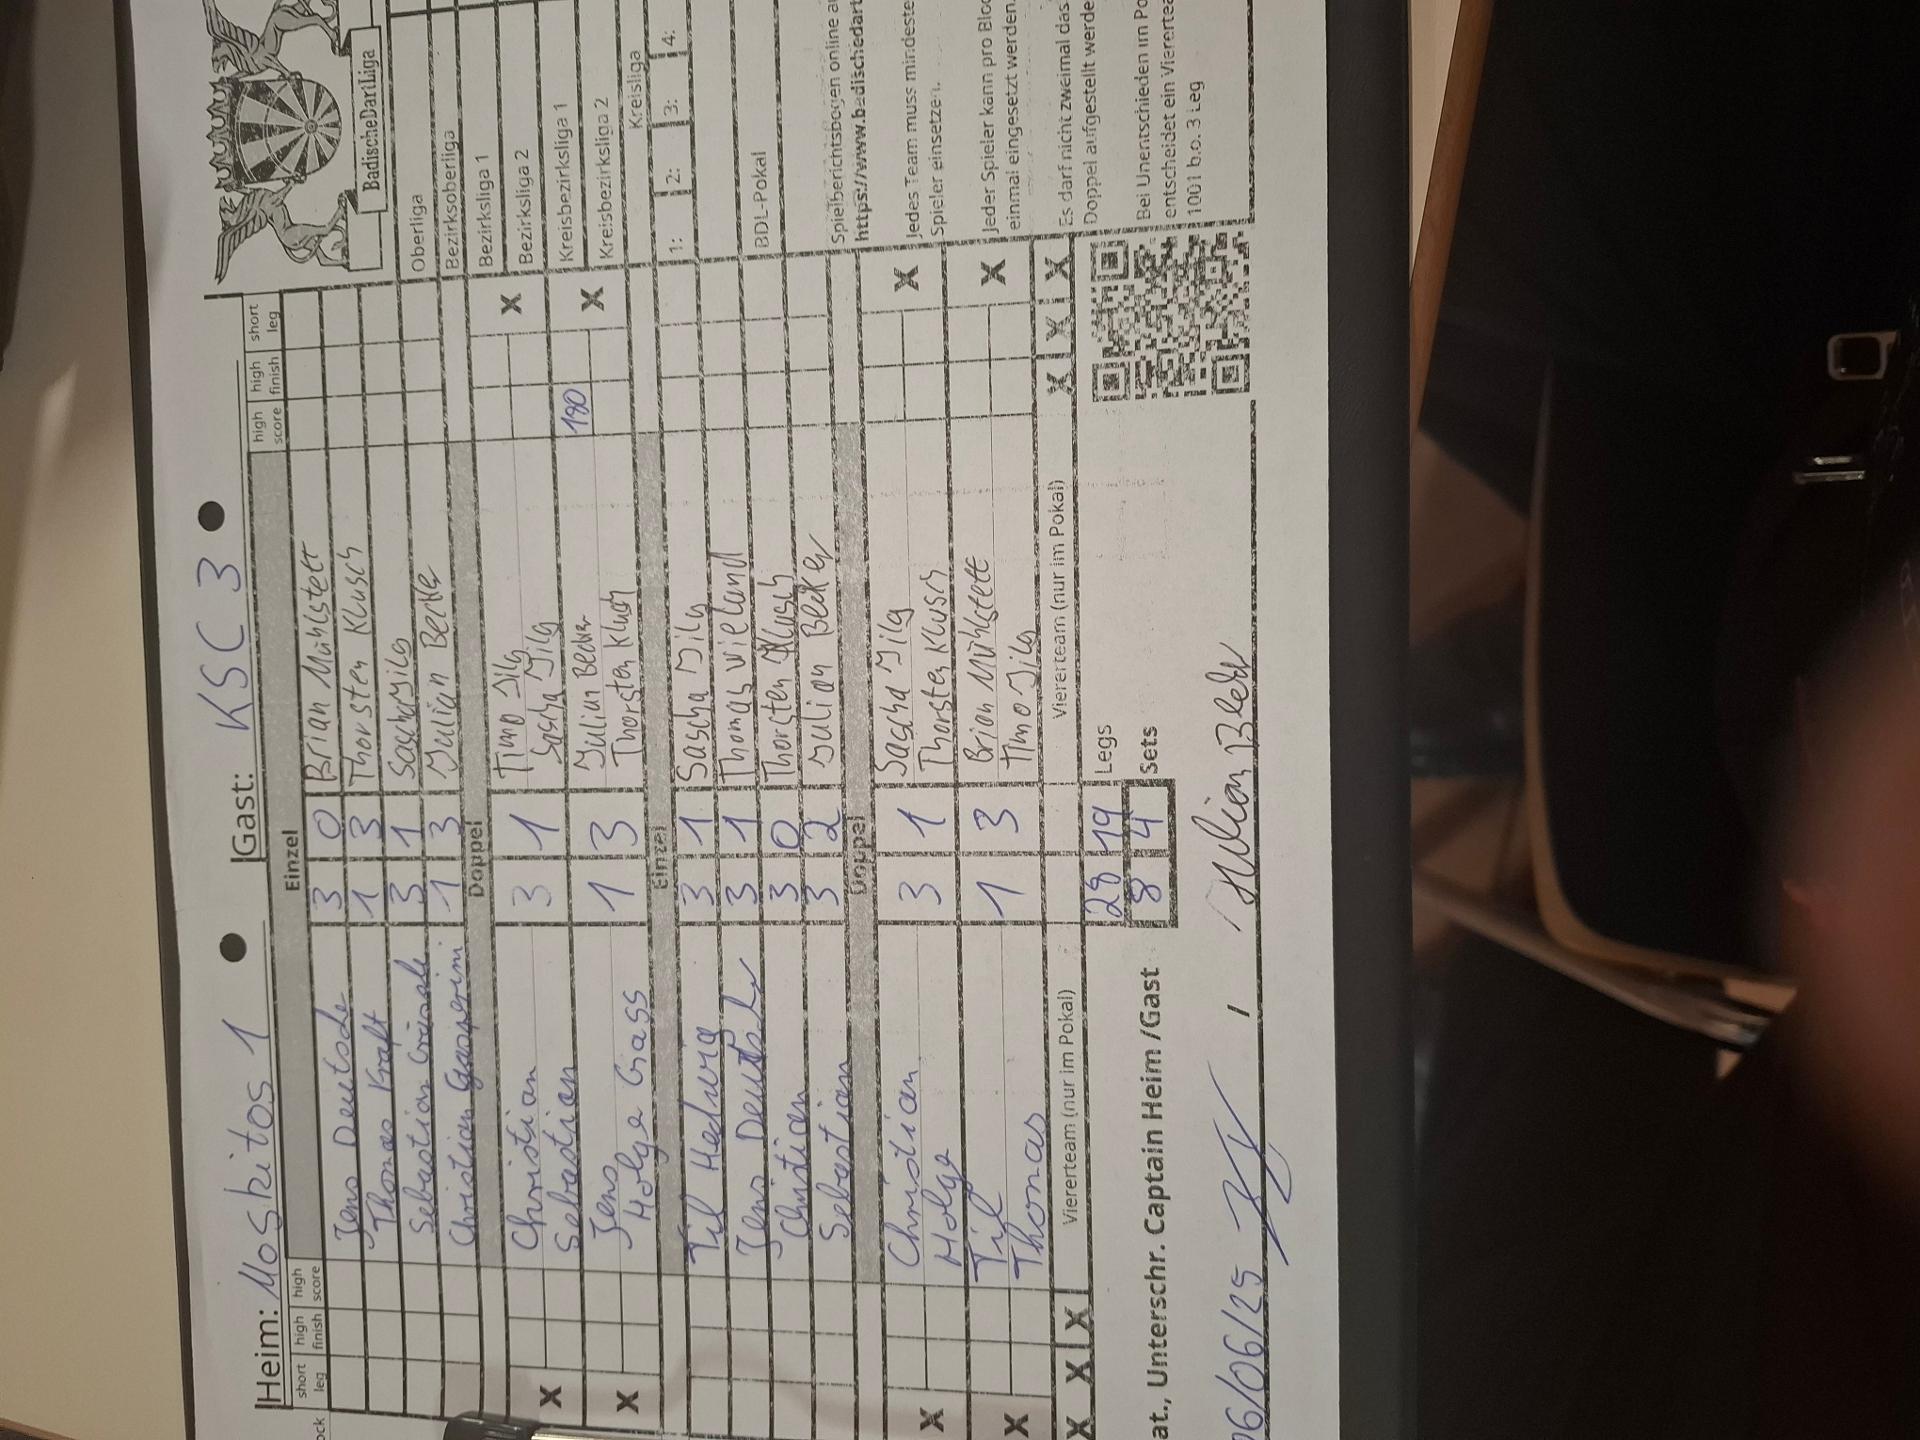 Heim: Moskitos 1 Gast: KSC 3
BadischeDartLiga
short leg high finish high score Einzel high score high finish short leg
Jens Deutsch 3 0 Brian Mühlstett
Thomas Kraft 1 3 Thorsten Klusch
Sebastian 3 1 Sascha Jilg
Christian Gasperini 1 3 Julian Becker
Doppel
X Christian 3 1 Timo Jilg X
Sebastian Sascha Jilg
X Jens 1 3 Julian Becker 180 X
Holger Grass Thorsten Klusch
Einzel
Til Hedwig 3 1 Sascha Jilg
Jens Deutsch 3 1 Thomas Wieland
Christian 3 0 Thorsten Klusch
Sebastian 3 2 Julian Becker
Doppel
X Christian 3 1 Sascha Jilg X
Holger Thorsten Klusch
X Til 1 3 Brian Mühlstett X
Thomas Timo Jilg
X X X Viererteam (nur im Pokal) Viererteam (nur im Pokal) X X X
28 19 Legs
at., Unterschr. Captain Heim/Gast 8 4 Sets
06/06/25 / Julian Becker
Oberliga
Bezirksoberliga
Bezirksliga 1
Bezirksliga 2
Kreisbezirksliga 1
Kreisbezirksliga 2
Kreisliga
1: 2: 3: 4:
BDL-Pokal
Spielberichtsbogen online
https://www.badischedart
Jedes Team muss mindeste
Spieler einsetzen.
Jeder Spieler kann pro Bloc
einmal eingesetzt werden.
Es darf nicht zweimal das
Doppel aufgestellt werde
Bei Unentschieden im Po
entscheidet ein Viererteam
1001 b.o. 3 Leg